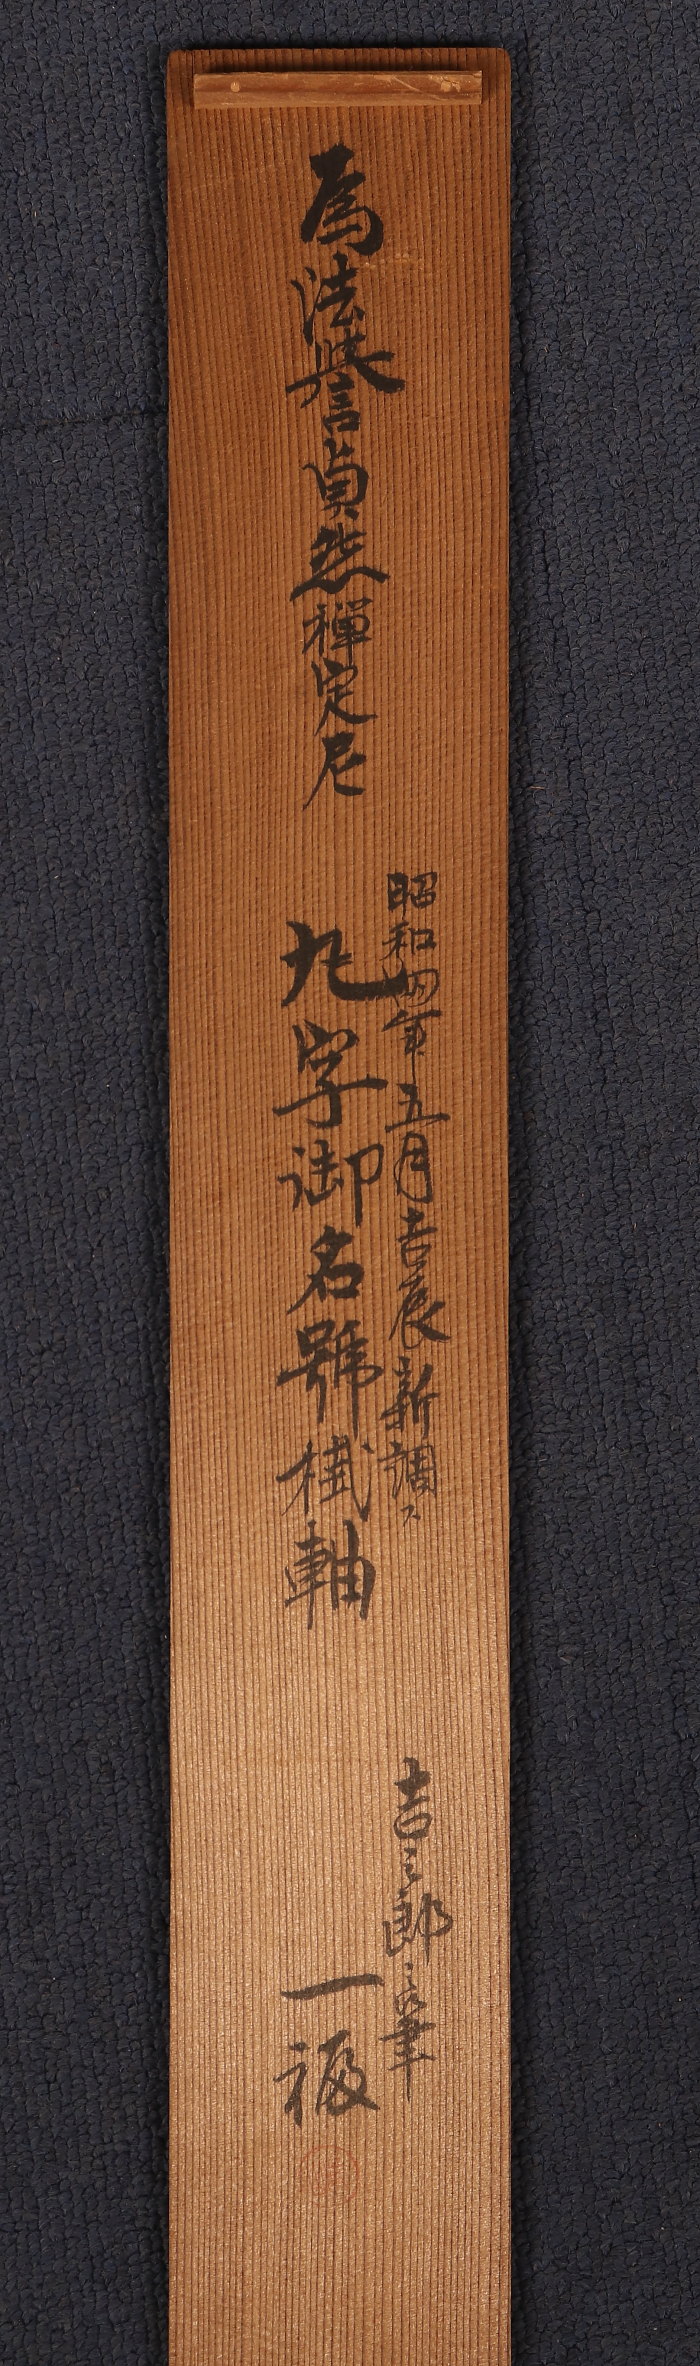 為法譽貞然禅定尼
昭和四年五月吉辰新調ス
九字御名號掛軸
吉之郎之筆
一福